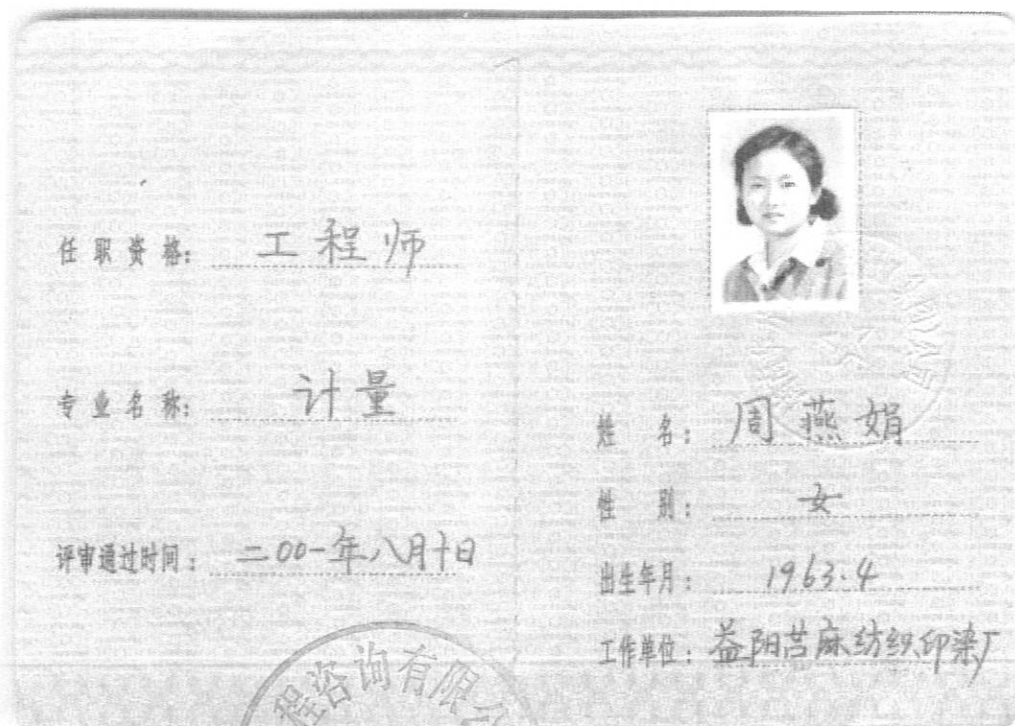 任职资格: 工程师
专业名称: 计量
评审通过时间: 二00一年八月十日
程咨询有限公
姓名: 周燕娟
性别: 女
出生年月: 1963.4
工作单位: 益阳苎麻纺织印染厂